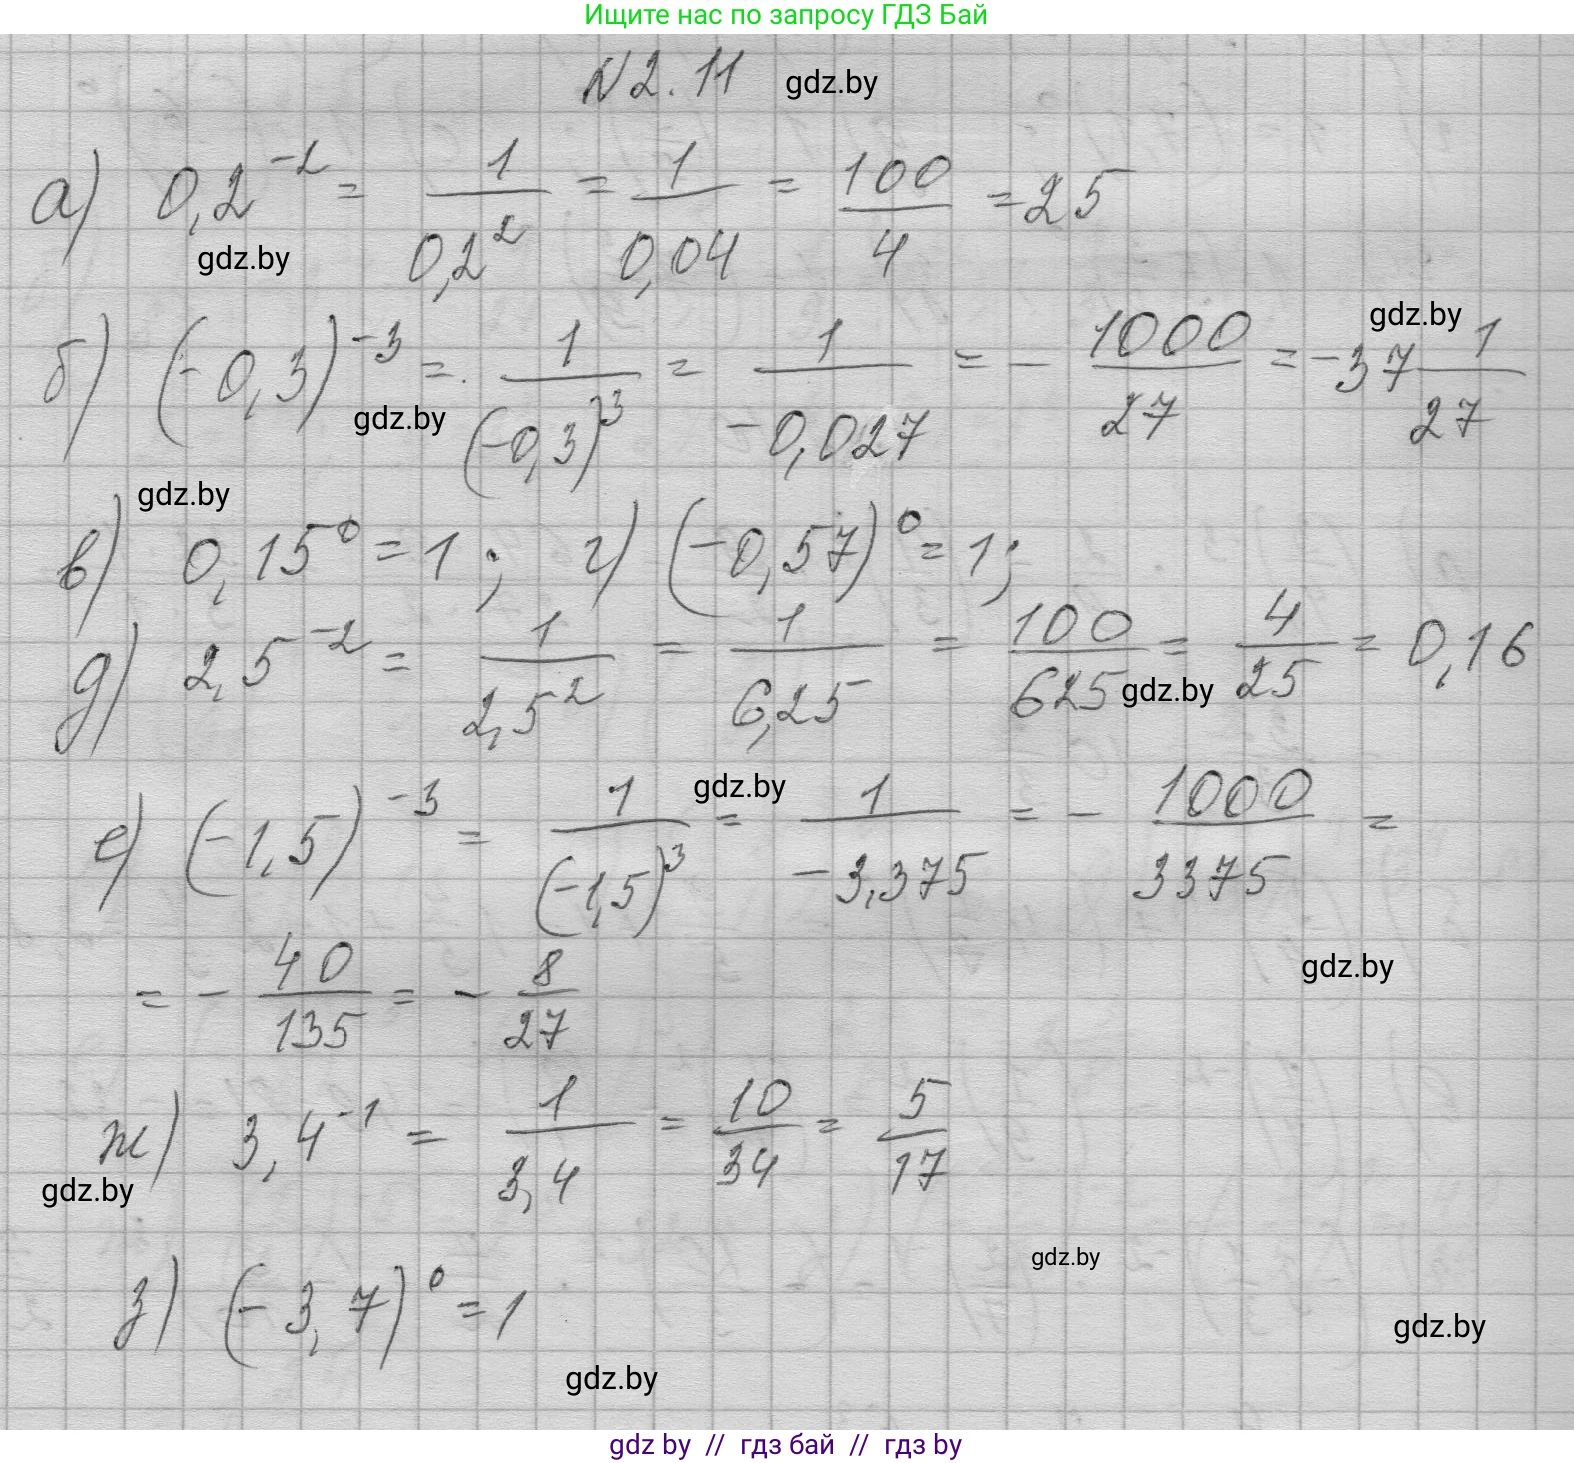 Ищите нас по запросу ГДЗ Бай
N 2.11 gdz.by
а) 0,2^{-2} = \frac{1}{0,2^2} = \frac{1}{0,04} = \frac{100}{4} = 25
gdz.by
gdz.by
б) (-0,3)^{-3} = \frac{1}{(-0,3)^3} = \frac{1}{-0,027} = -\frac{1000}{27} = -37\frac{1}{27}
gdz.by
gdz.by
в) 0,15^0 = 1 ; г) (-0,57)^0 = 1;
д) 2,5^{-2} = \frac{1}{2,5^2} = \frac{1}{6,25} = \frac{100}{625} = \frac{4}{25} = 0,16
gdz.by
gdz.by
е) (-1,5)^{-3} = \frac{1}{(-1,5)^3} = \frac{1}{-3,375} = -\frac{1000}{3375} =
gdz.by
= -\frac{40}{135} = -\frac{8}{27}
ж) 3,4^{-1} = \frac{1}{3,4} = \frac{10}{34} = \frac{5}{17}
gdz.by
gdz.by
з) (-3,7)^0 = 1
gdz.by
gdz.by
gdz by // гдз бай // гдз by